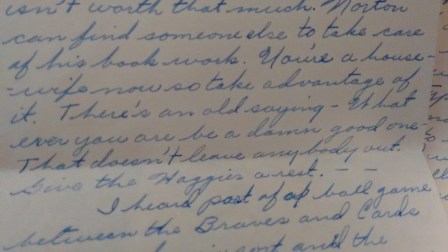 isn't worth that much. Norton
can find someone else to take care
of his book work. You're a house-
-wife now so take advantage of
it. There's an old saying - What
ever you are be a damn good one.
That doesn't leave anybody out.
Give the Haggies a rest. - -
I heard part of a ball game
between the Braves and Cards
and the